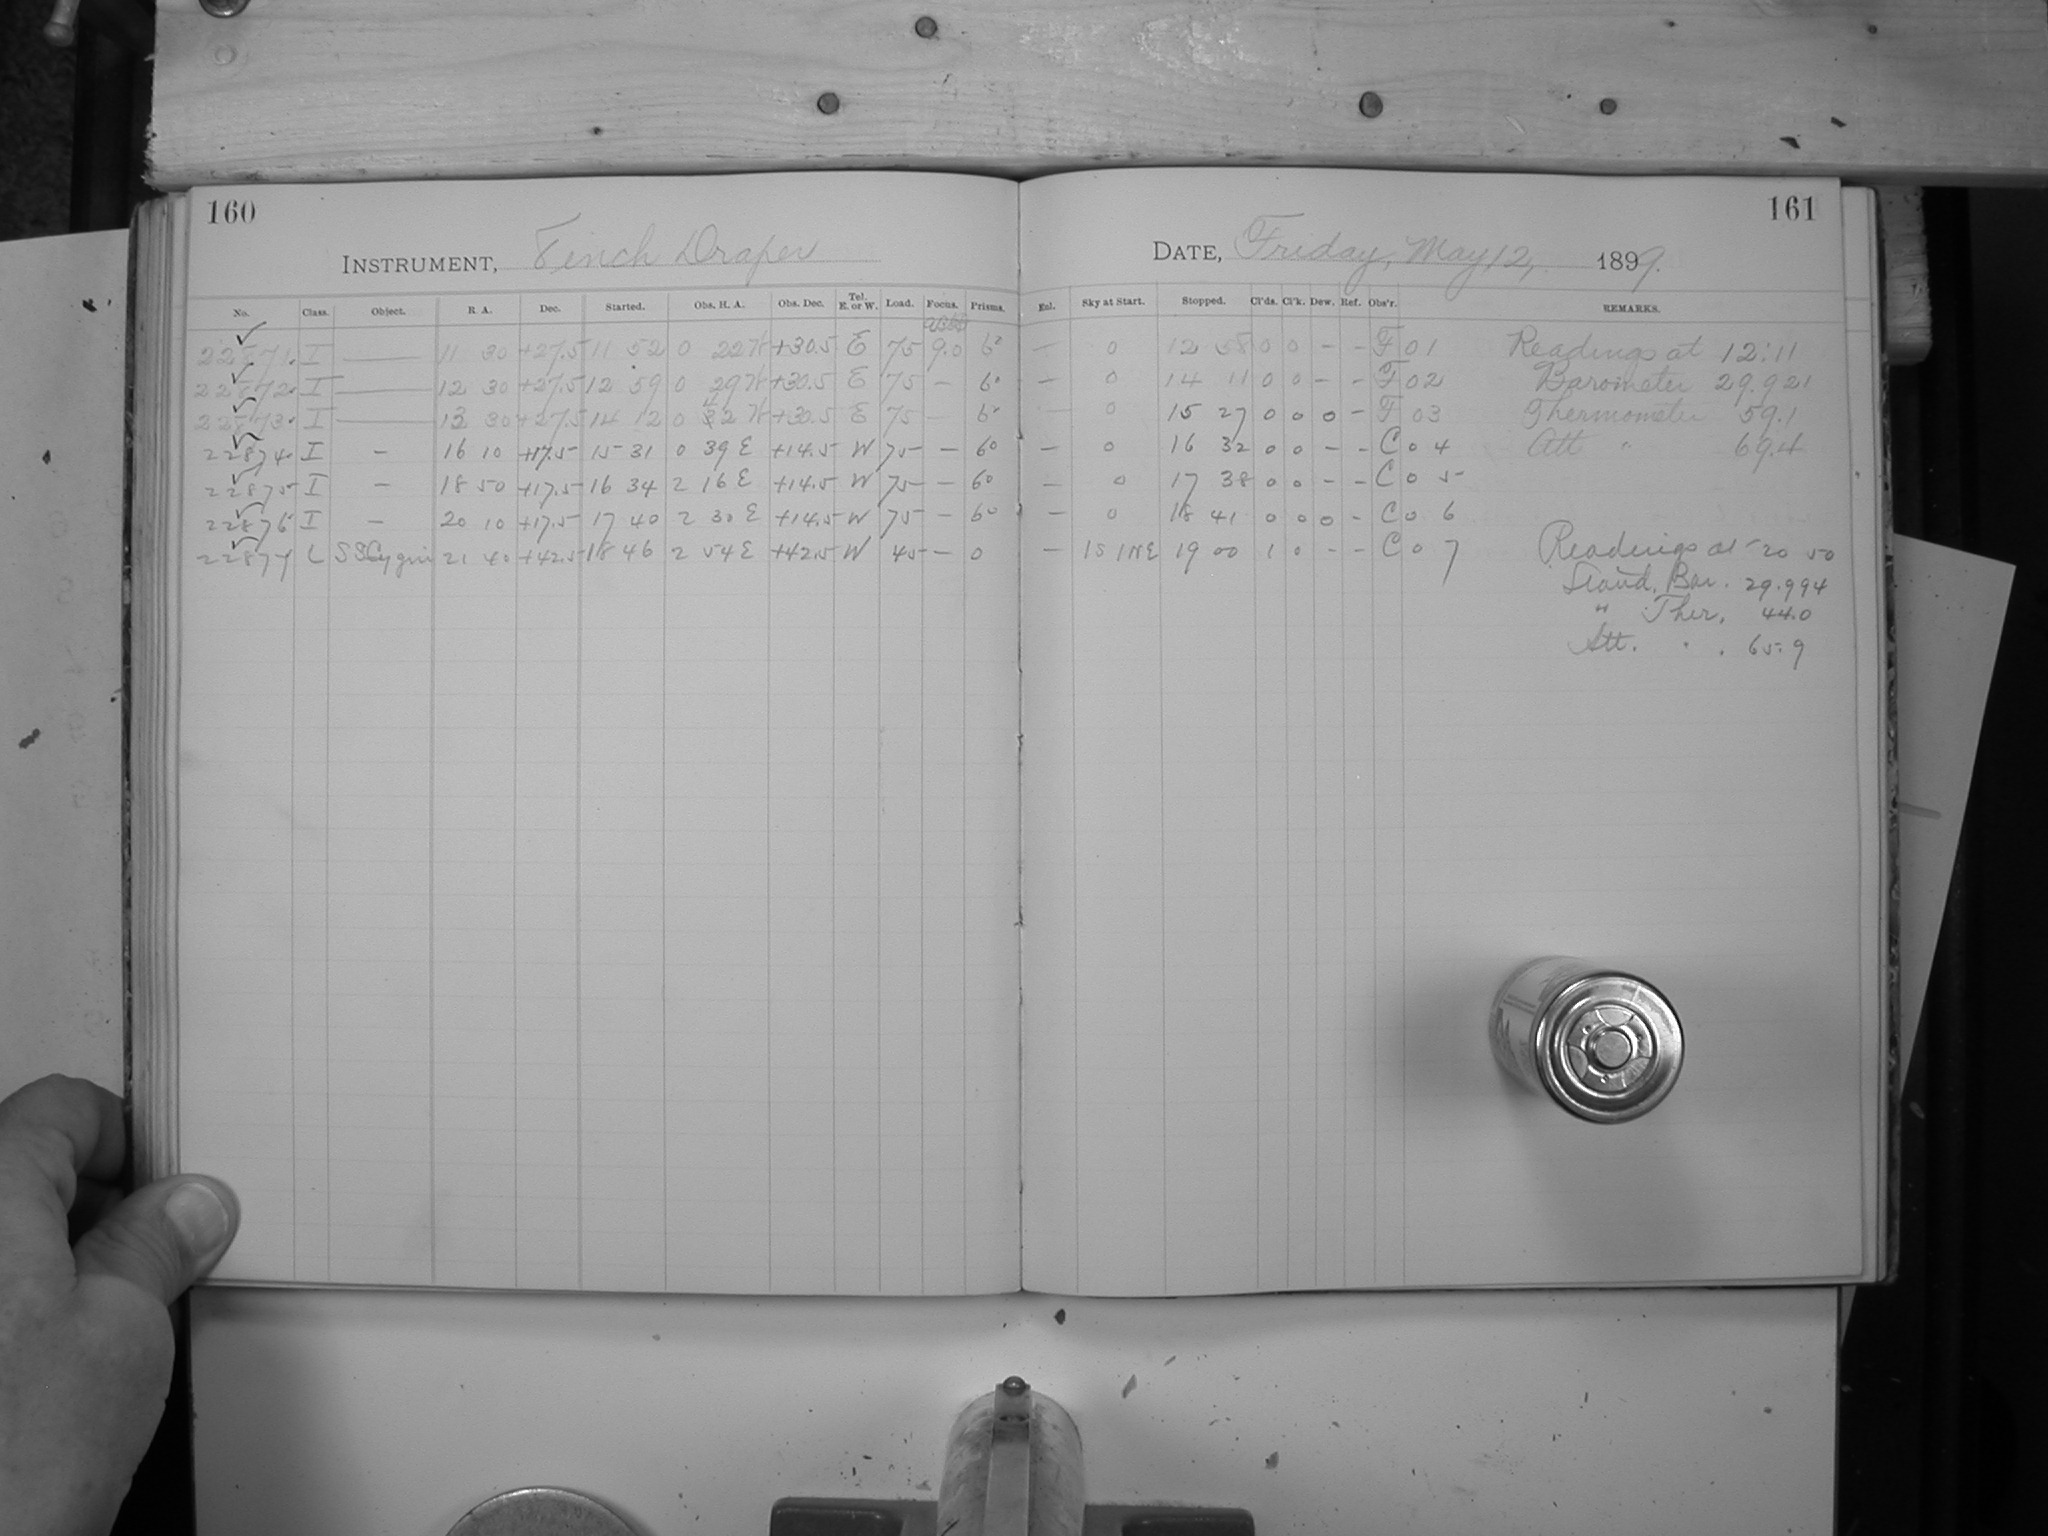 160
161
INSTRUMENT, 8 inch Draper
DATE, Friday, May 12, 1899.
No. Class. Object. R. A. Dec. Started. Obs. H. A. Obs. Dec. Tel. E. or W. Load. Focus. Prisms. Enl. Sky at Start. Stopped. Cl'ds. Cl'k. Dew. Ref. Obs'r. REMARKS.
22871. I — 11 30 +27.5 11 52 0 22 W +30.5 E 75 9.0 6° — 0 12 58 0 0 – – F 01 Readings at 12:11
22872. I — 12 30 +27.5 12 59 0 29 W +30.5 E 75 – 6° — 0 14 11 0 0 – – F 02 Barometer 29.921
22873. I — 13 30 +27.5 14 12 0 42 W +30.5 E 75 – 6° — 0 15 27 0 0 0 – F 03 Thermometer 59.1
22874. I – 16 10 +17.5 15 31 0 39 E +14.5 W 75 – 60 — 0 16 32 0 0 – – C 04 Att " 69.4
22875. I – 18 50 +17.5 16 34 2 16 E +14.5 W 75 – 60 — 0 17 38 0 0 – – C 05
22876. I – 20 10 +17.5 17 40 2 30 E +14.5 W 75 – 60 — 0 18 41 0 0 0 – C 06
22877 L SS Cygni 21 40 +42.5 18 46 2 54 E +42.5 W 45 – 0 — 1S 1NE 19 00 1 0 – – C 07 Readings at 20 50
Stand. Bar. 29.994
" Ther. 44.0
Att. " . 65.9